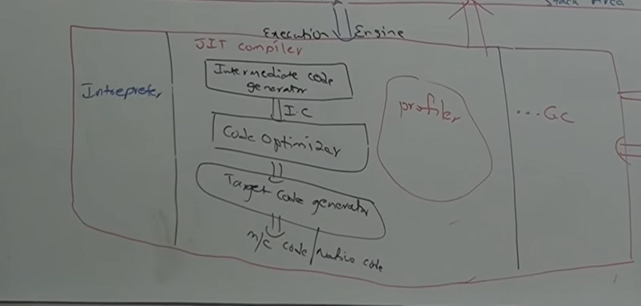 Stack Area
Execution Engine
JIT compiler
Intrepreter
Intermediate code
generator
IC
Code Optimizer
Target Code generator
m/c code/native code
profiler
...GC